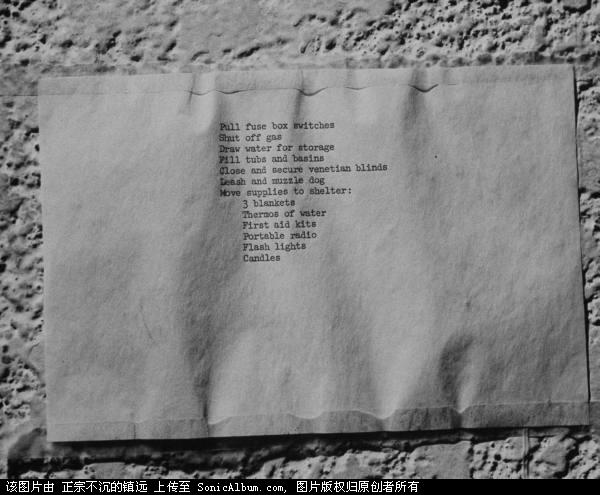 Pull fuse box switches
Shut off gas
Draw water for storage
Fill tubs and basins
Close and secure venetian blinds
Leash and muzzle dog
Move supplies to shelter:
3 blankets
Thermos of water
First aid kits
Portable radio
Flash lights
Candles
该图片由 正宗不沉的镇远 上传至 SonicAlbum.com, 图片版权归原创者所有